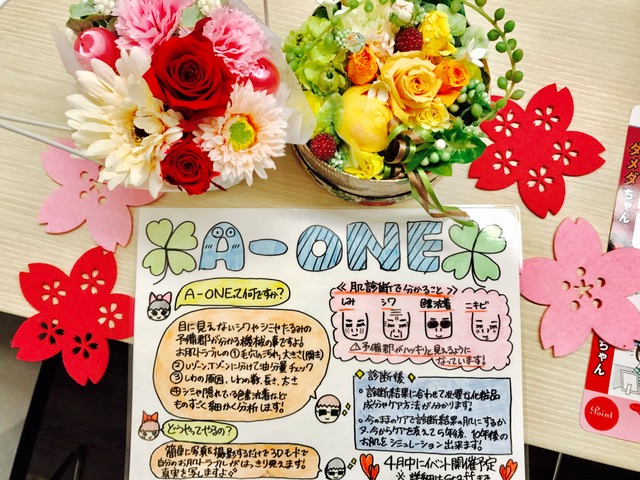 A-ONE
A-ONEって何ですか?
目に見えないシワやシミやたるみの
予備郡が分かる機械の事ですよ
お肌トラブルの①毛穴の汚れ、大きさ(開き)
②Uゾーン、Tゾーンに分けて油分量チェック
③しわの原因、しわの数、長さ、太さ
④シミや隠れている色素沈着なども
ものすごく細かく分析します。
どうやってやるの?
簡単に写真を撮影するだけで3Dモードで
自分のお肌トラブルがはっきり見えます。
真実を写しますよ。
≪肌診断で分かること≫
しみ シワ 色素沈着 ニキビ
予備郡がハッキリと見えるように
なっています!
診断後
・診断結果に合わせて必要な化粧品
成分やケア方法が分かります。
・今のままのケアで診断結果の肌にするか
又、今からケアを変えて5年後、10年後の
お肌をシミュレーション出来ます!
4月中にイベント開催予定
※詳細はStaffまで
ダメダ
ちゃん
ちゃん
Point